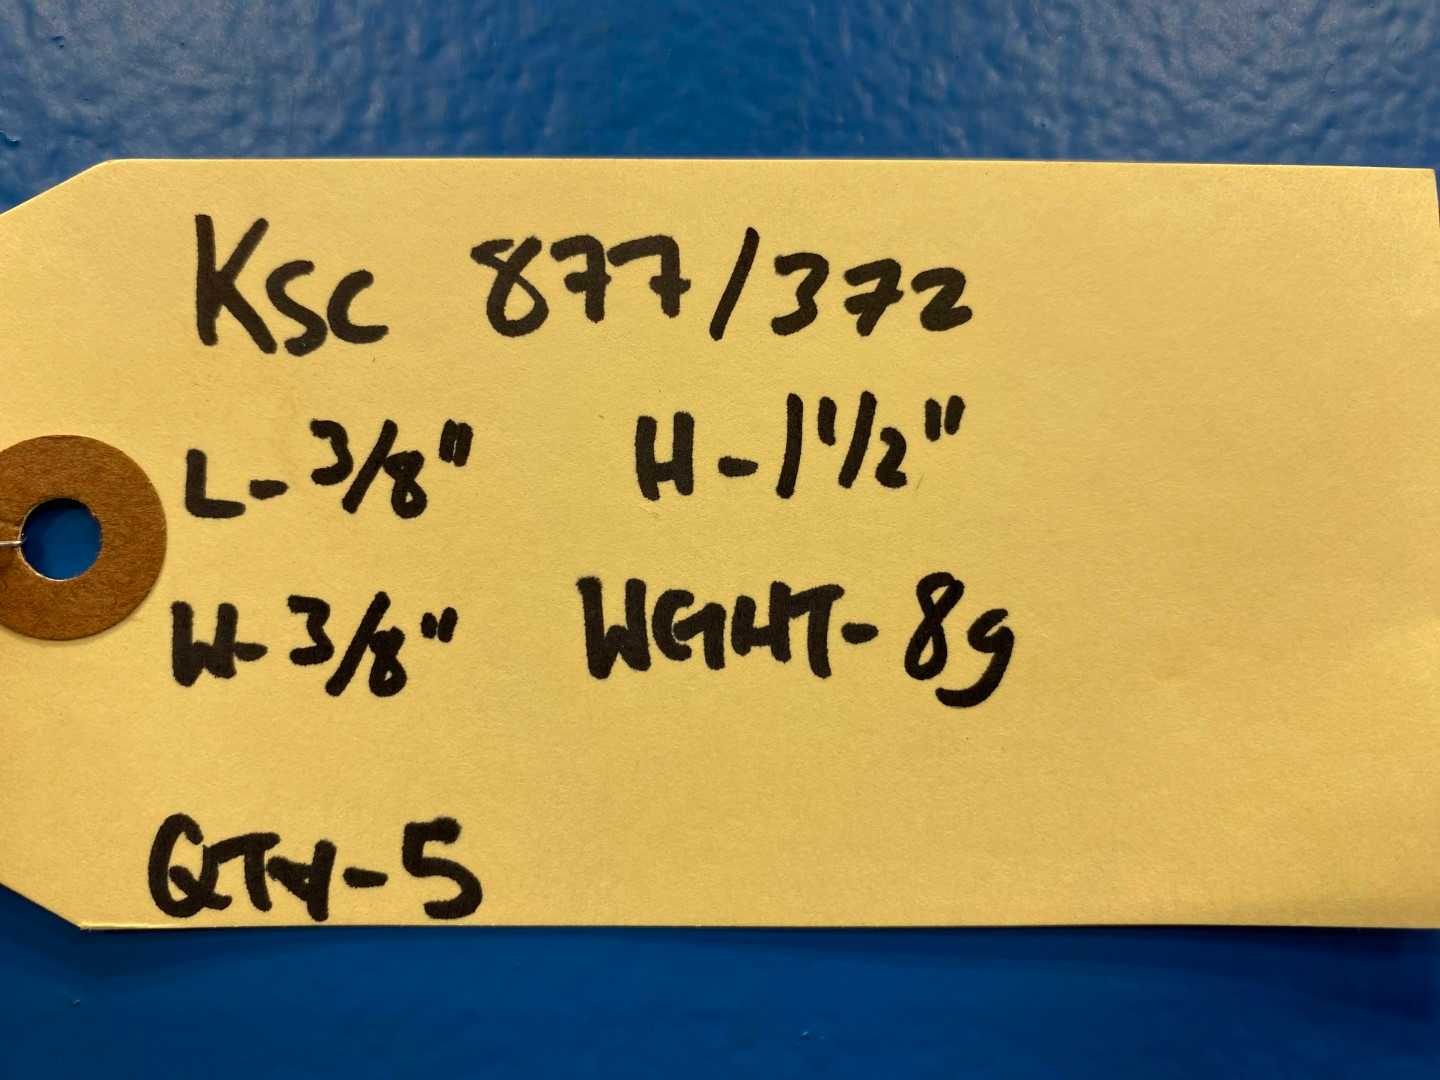 KSC 877/372
L-3/8" H-1 1/2"
W-3/8" WGHT-8g
QTY-5